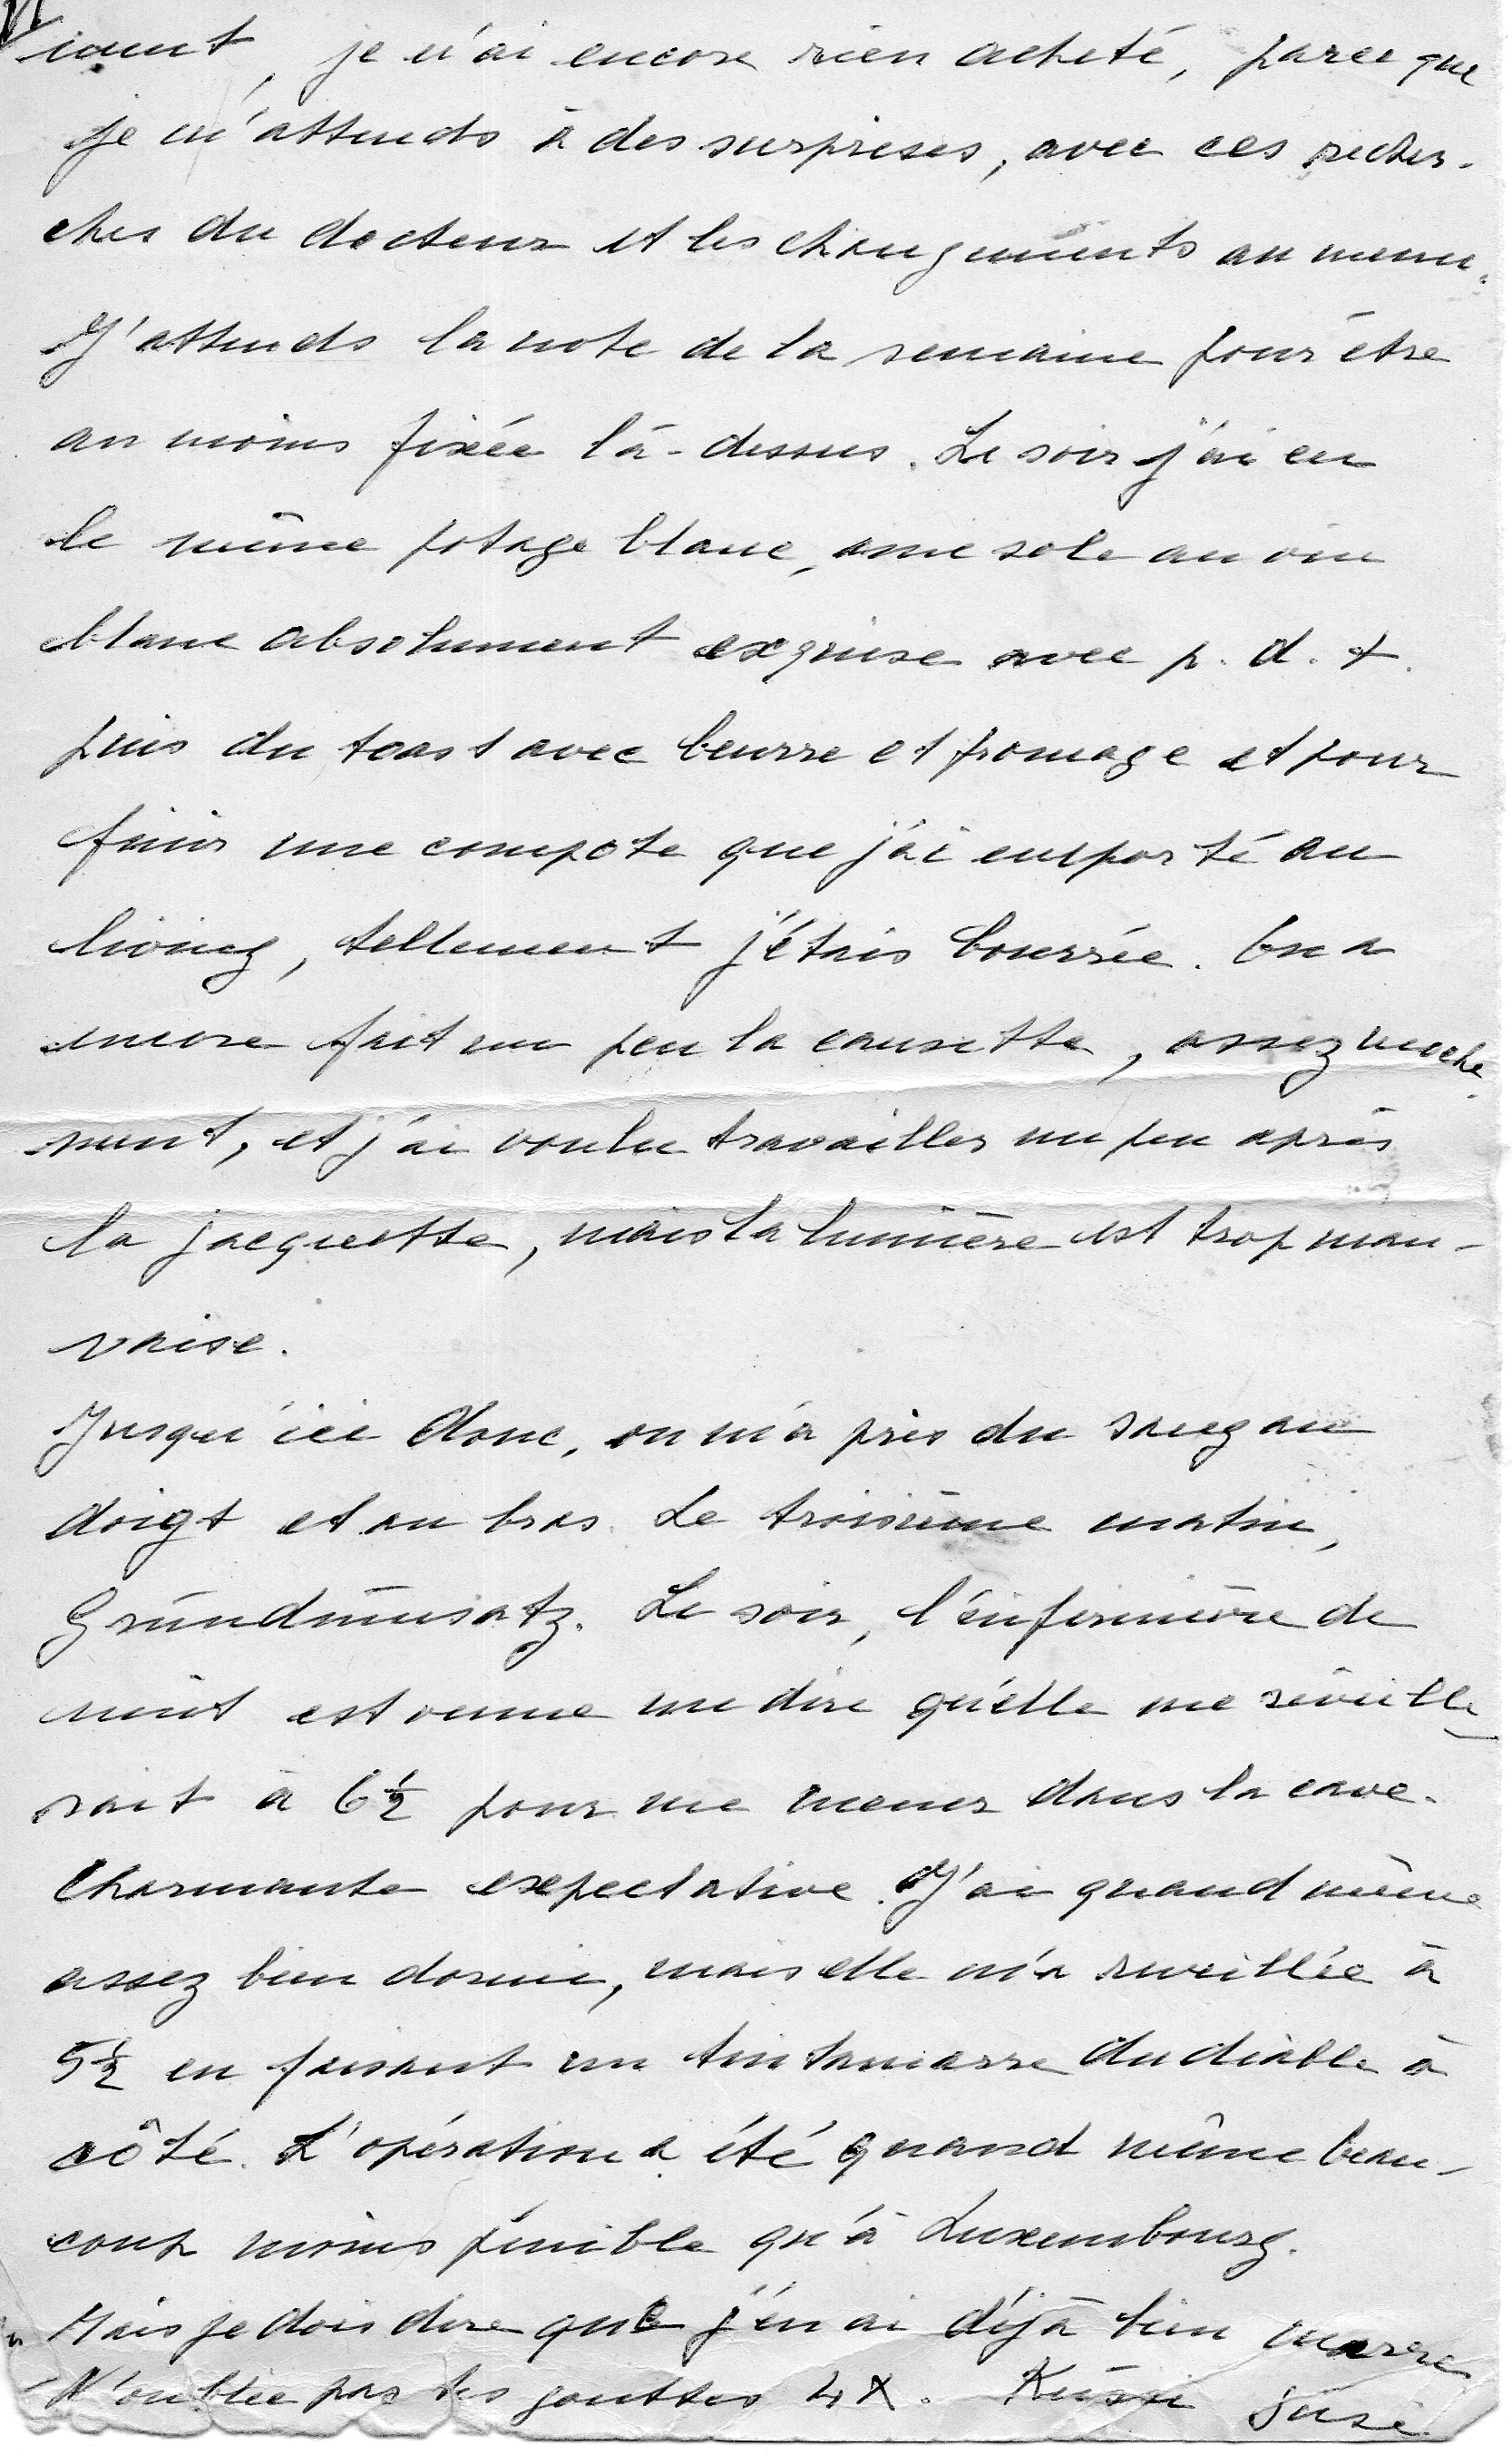 VI
vant, je n'ai encore rien acheté, parce que
je m'attends à des surprises, avec ces recher-
ches du docteur et les changements au menu.
J'attends la note de la semaine pour être
au moins fixée là-dessus. Le soir j'ai eu
le même potage blanc, une sole au vin
blanc absolument exquise avec p. d. t.
puis du toast avec beurre et fromage et pour
finir une compote que j'ai emporté au
living, tellement j'étais bourrée. On a
encore fait un peu la causette, assez moche-
ment, et j'ai voulu travailler un peu après
la jacquette, mais la lumière est trop mau-
vaise.
Jusqu'ici donc, on m'a pris du sang au
doigt et au bras. Le troisième matin,
Grundumsatz. Le soir, l'infirmière de
nuit est venue me dire qu'elle me réveille
rait à 6½ pour me mener dans la cave.
Charmante expectative. J'ai quand même
assez bien dormi, mais elle m'a réveillée à
5½ en faisant un tintamarre du diable à
côté. L'opération a été quand même beau-
coup moins pénible qu'à Luxembourg.
Mais je dois dire que j'en ai déjà bien marre
N'oublie pas tes gouttes 4 X.